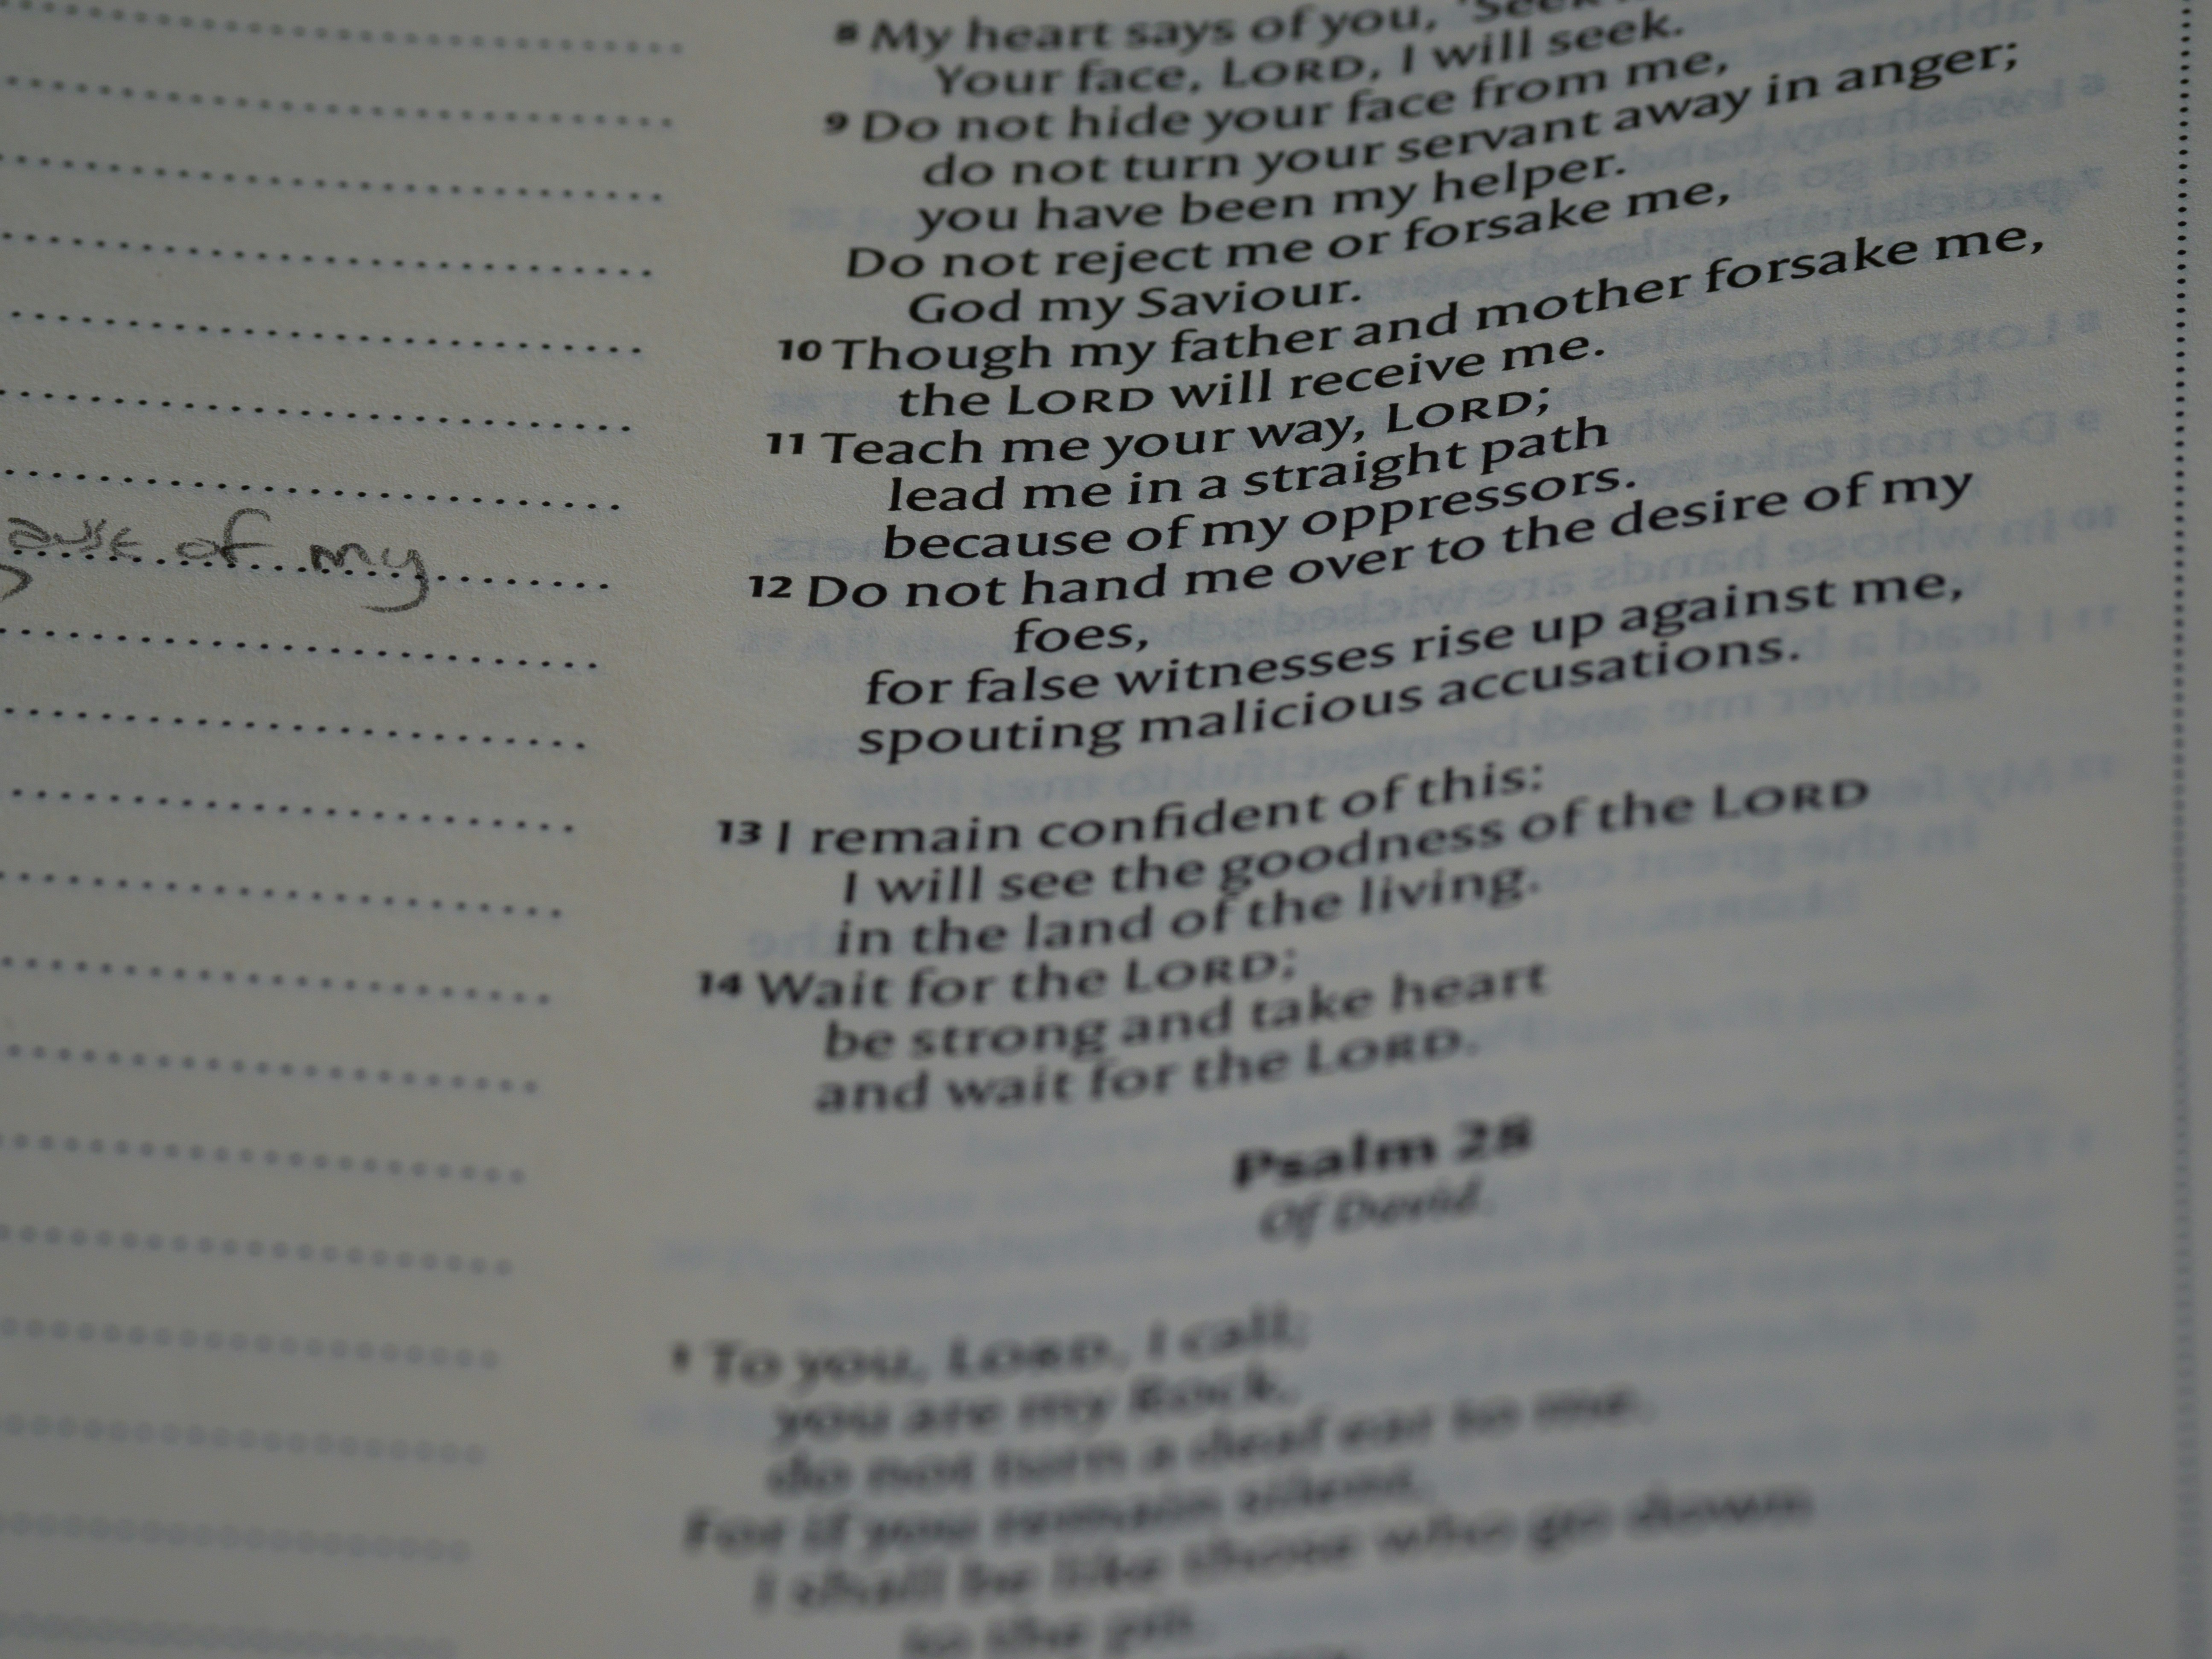 8 My heart says of you, 'Seek
Your face, LORD, I will seek.
9 Do not hide your face from me,
do not turn your servant away in anger;
you have been my helper.
Do not reject me or forsake me,
God my Saviour.
10 Though my father and mother forsake me,
the LORD will receive me.
11 Teach me your way, LORD;
lead me in a straight path
because of my oppressors.
12 Do not hand me over to the desire of my
foes,
for false witnesses rise up against me,
spouting malicious accusations.
13 I remain confident of this:
I will see the goodness of the LORD
in the land of the living.
14 Wait for the LORD;
be strong and take heart
and wait for the LORD.
Psalm 28
Of David.
1 To you, LORD, I call;
you are my Rock,
do not turn a deaf ear to me.
For if you remain silent,
I shall be like those who go down
to the pit.
ause of my